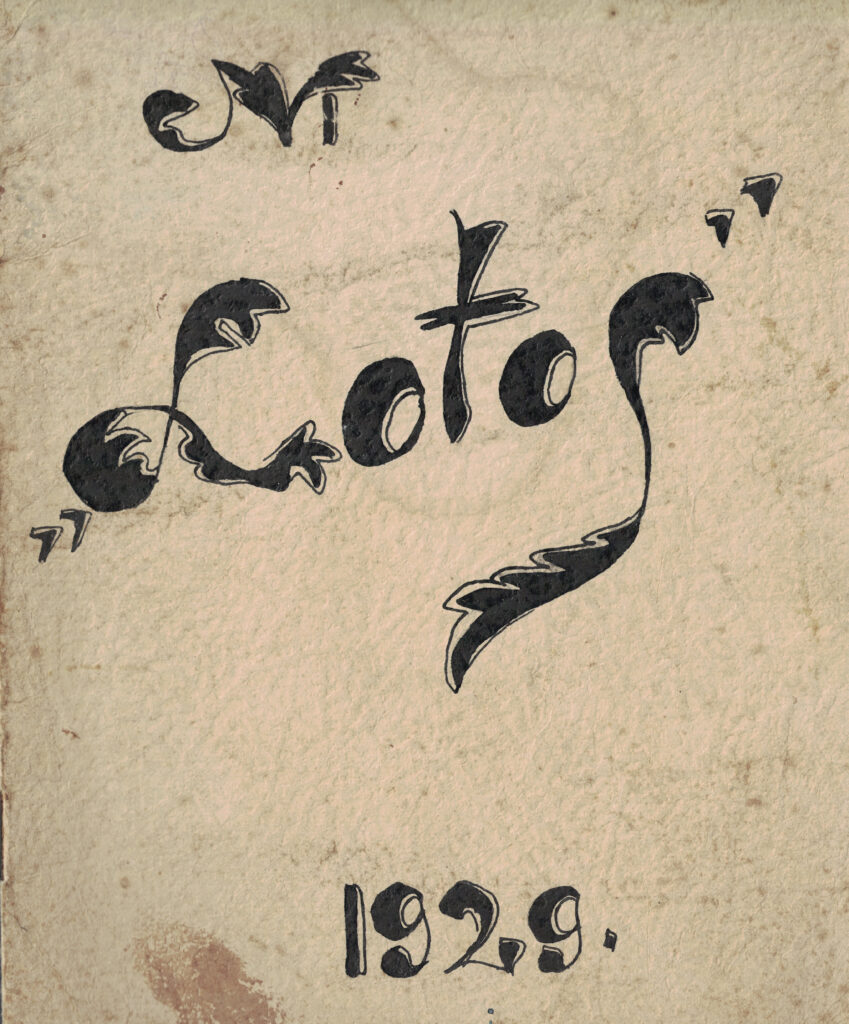 N1
„Lotos”
1929.